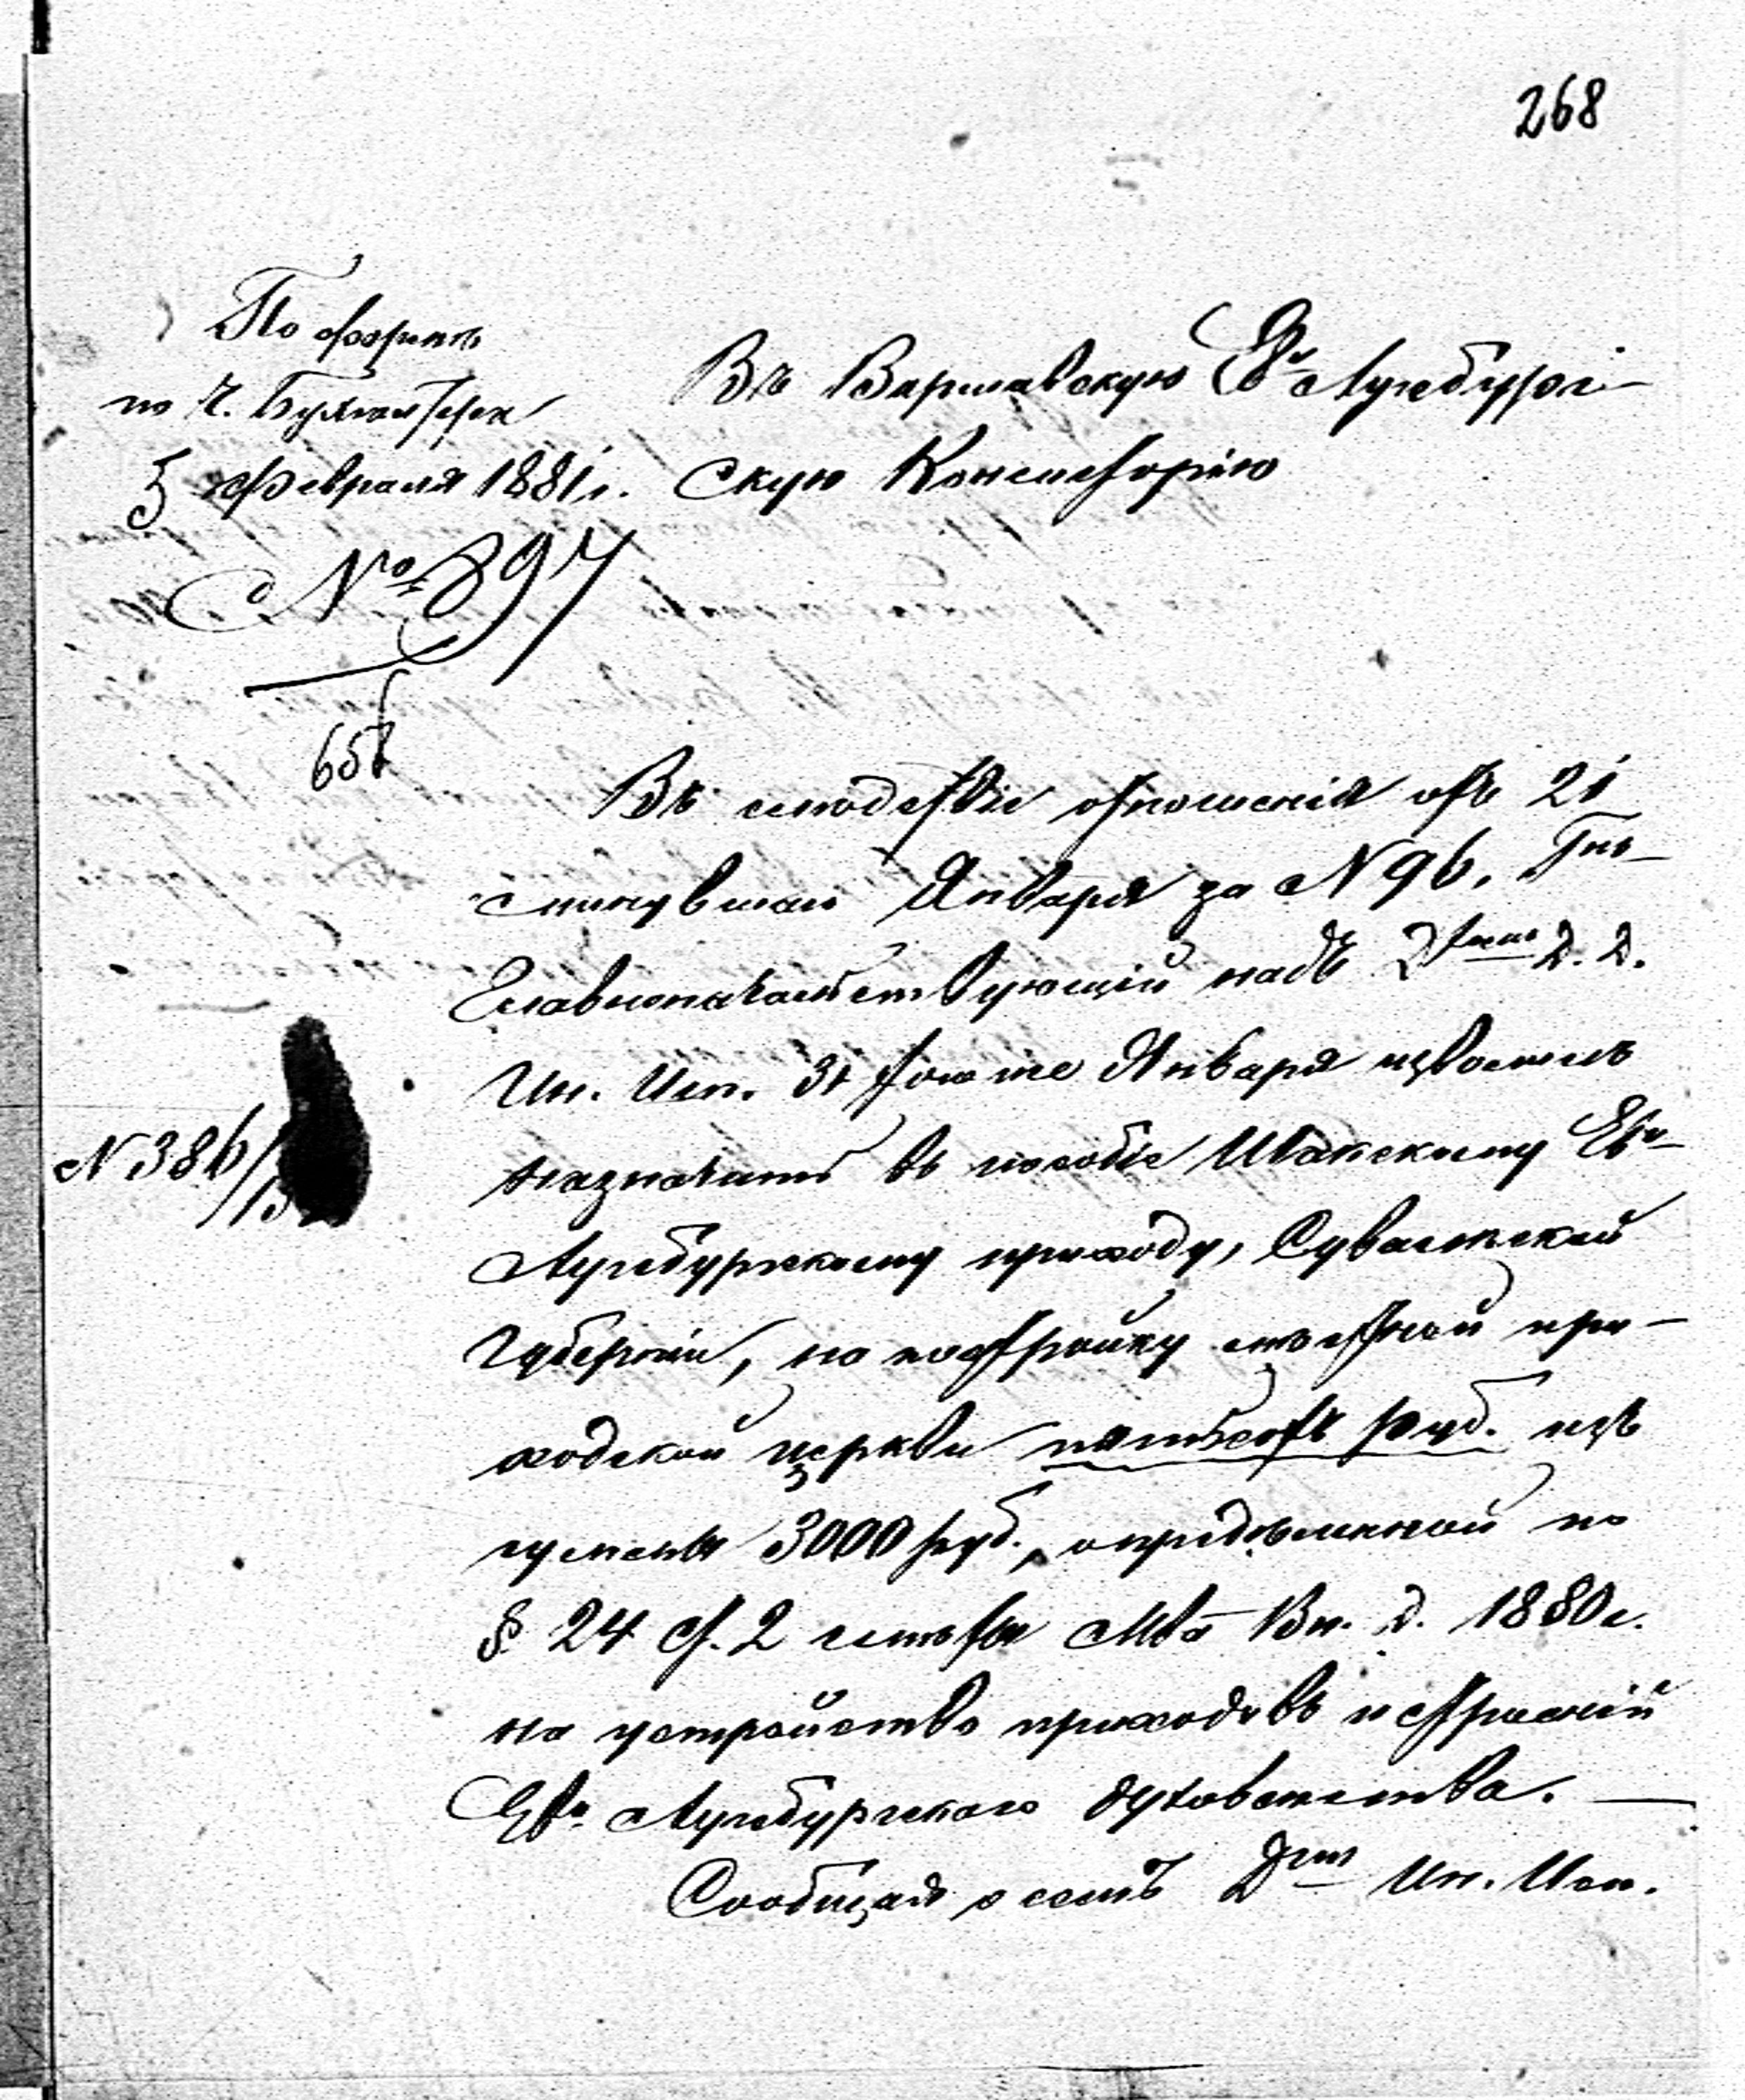 268
По формѣ
по Ч. Бухгалтера
5 Февраля 1881 г.
№ 897
Въ Варшавскую Ев. Аугсбург-
скую Консисторію
Въ слѣдствіе отношенія отъ 21
минувшаго Января за № 96, Гнъ
Главноначальствующій надъ Дтами Д. Д.
Ин. Исп. 31 того же Января изволилъ
назначить въ пособіе Шакскому Ев.-
Аугсбургскому приходу, Сувалкской
Губерніи, на постройку мѣстной при-
ходской церкви пятьсотъ руб. изъ
суммы 3000 руб., опредѣленной по
§ 24 ст. 2 смѣты Мва Вн. Д. 1880 г.
на устройство приходовъ и строеній
Ев. Аугсбургскаго духовенства. —
Сообщая о семъ Дтъ Ин. Исп.
№ 386/